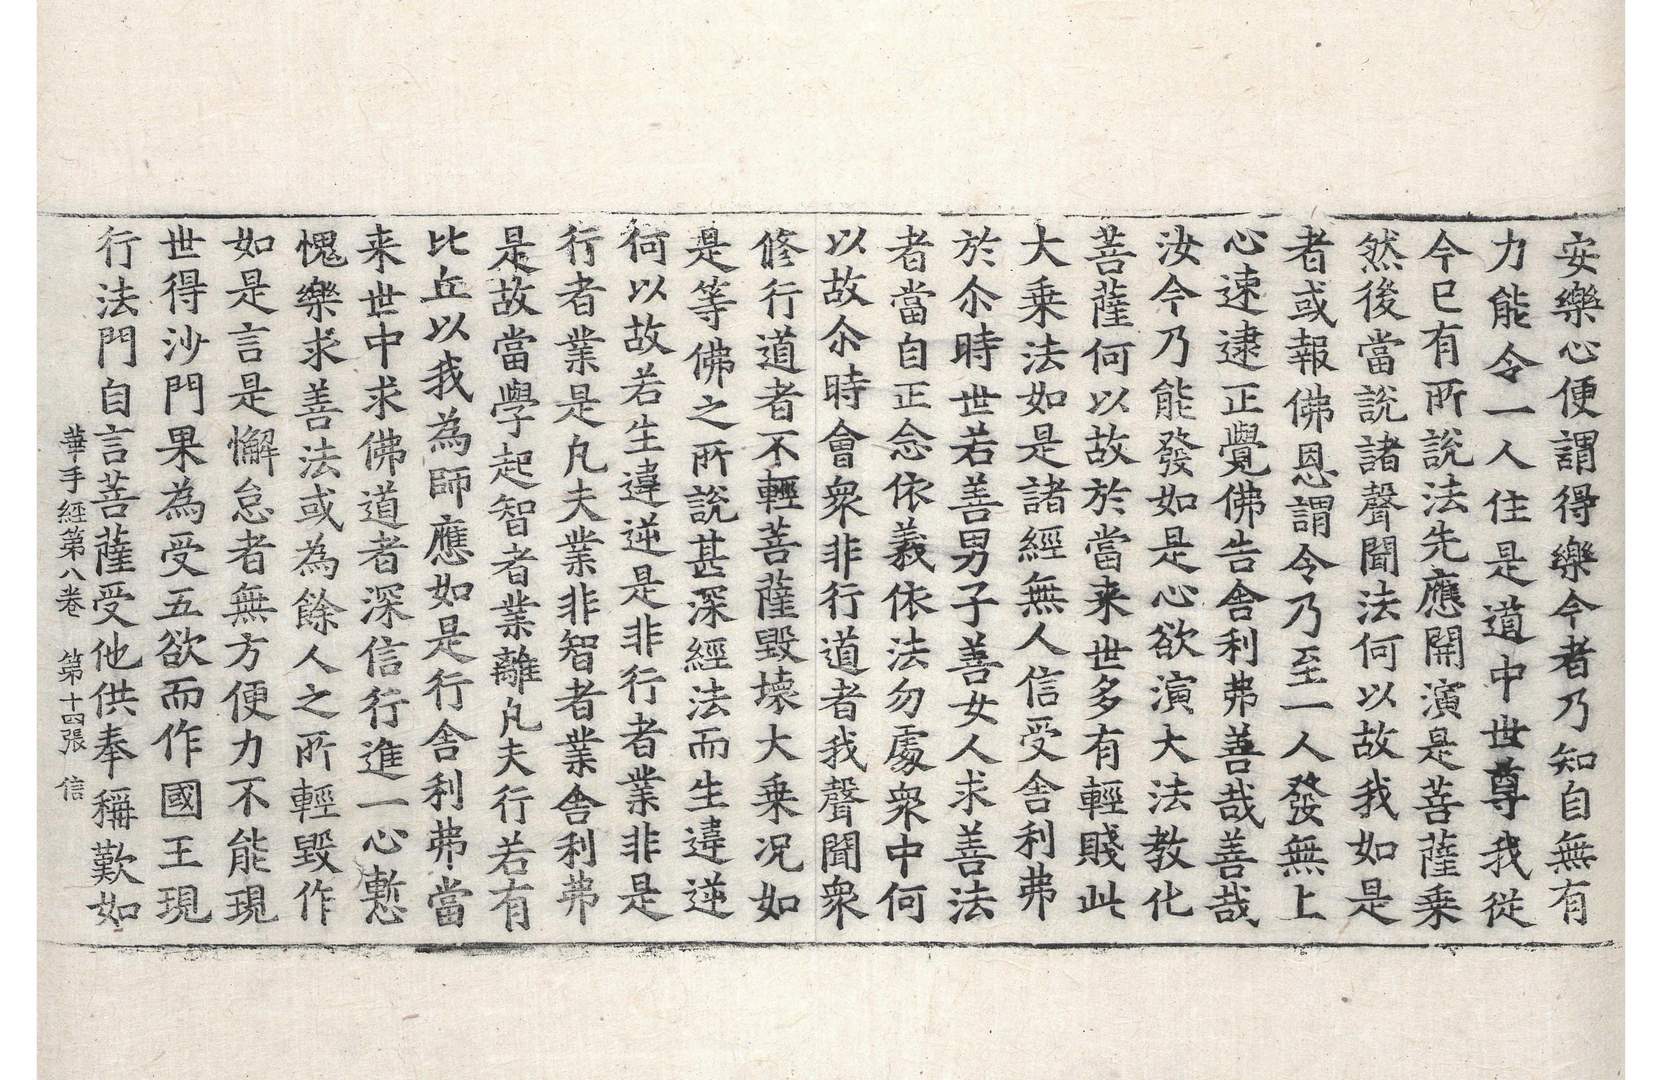 安樂心便謂得樂今者乃知自無有
力能令一人住是道中世尊我從
今已有所說法先應開演是菩薩乘
然後當說諸聲聞法何以故我如是
者或報佛恩謂令乃至一人發無上
心速逮正覺佛告舍利弗善哉善哉
汝今乃能發如是心欲演大法教化
菩薩何以故於當来世多有輕賤此
大乗法如是諸經無人信受舍利弗
於尒時世若善男子善女人求善法
者當自正念依義依法勿處衆中何
以故尒時會衆非行道者我聲聞衆
修行道者不輕菩薩毀壞大乗况如
是等佛之所說甚深經法而生違逆
何以故若生違逆是非行者業非是
行者業是凡夫業非智者業舍利弗
是故當學起智者業離凡夫行若有
比丘以我為師應如是行舍利弗當
来世中求佛道者深信行進一心慙
愧樂求善法或為餘人之所輕毀作
如是言是懈怠者無方便力不能現
世得沙門果為受五欲而作國王現
行法門自言菩薩受他供奉稱歎如
華手經第八卷　第十四張　信